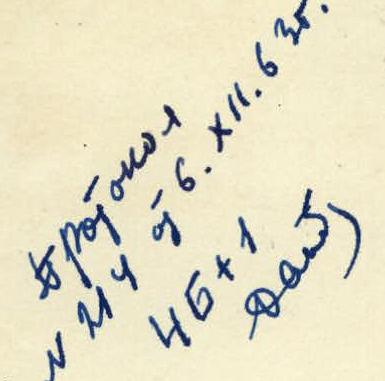 Протокол
N 214 от 6.XII.63г.
4Б+1